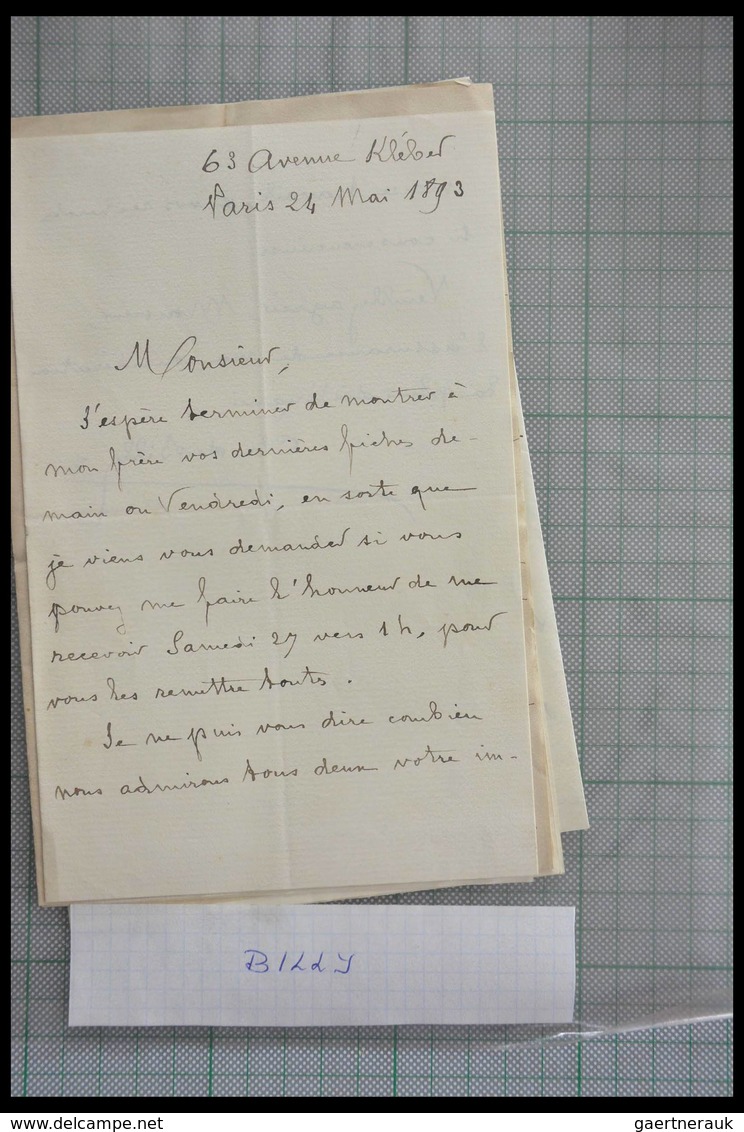 63 Avenue Kléber
Paris 24 Mai 1893
Monsieur,
J'espère terminer de montrer à
mon frère vos dernières fiches de-
main ou Vendredi, en sorte que
je viens vous demander si vous
pouvez me faire l'honneur de me
recevoir Samedi 27 vers 1 h, pour
vous les remettre toutes.
Je ne puis vous dire combien
nous admirons tous deux votre im-
BILLY
gaertnerauk